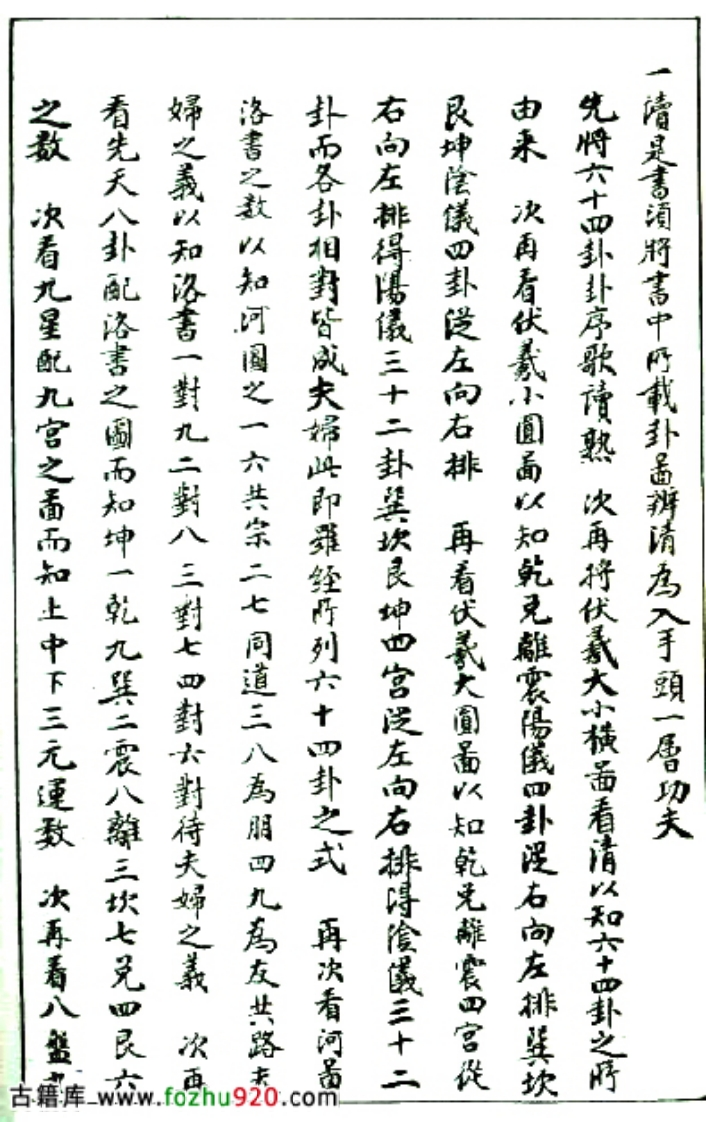 一讀是書須將書中所載卦啚辨清為入手頭一層功夫
先將六十四卦卦序歌讀熟 次再將伏羲大小橫啚看清以知六十四卦之所
由来 次再看伏羲小圓啚以知乾兌離震陽儀四卦從右向左排巽坎
艮坤陰儀四卦從左向右排 再看伏羲大圓啚以知乾兌離震四宮從
右向左排得陽儀三十二卦巽坎艮坤四宮從左向右排得陰儀三十二
卦而各卦相對皆成夫婦此即雖經所列六十四卦之式 再次看河啚
洛書之数以知河圖之一六共宗二七同道三八為朋四九為友共路夫
婦之義以知洛書一對九二對八三對七四對六對待夫婦之義 次再
看先天八卦配洛書之圖而知坤一乾九巽二震八離三坎七兌四艮六
之数 次看九星配九宮之啚而知上中下三元運数 次再看八盤
古籍库 www.fozhu920.com